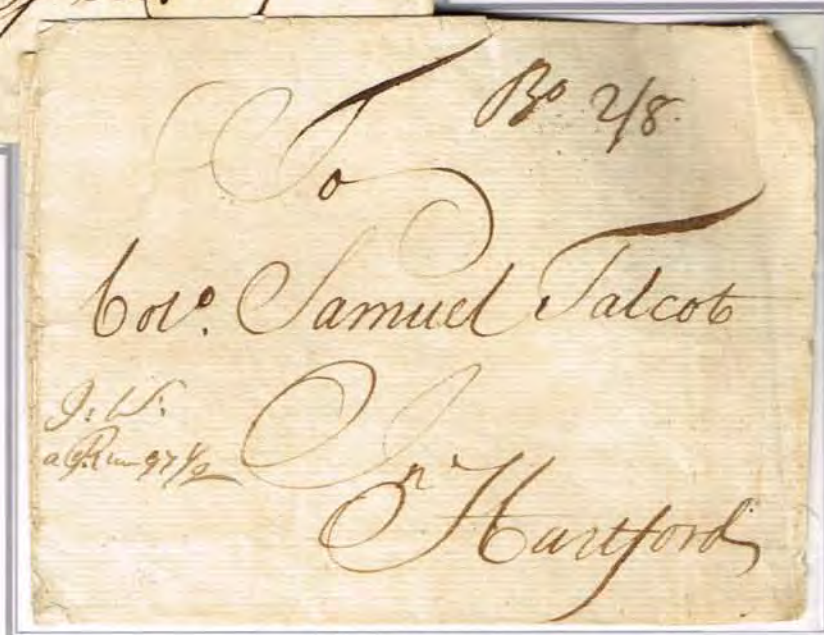 Bo 2/8
To
Colo. Samuel Talcott
J: W:
97 1/2
In
Hartford